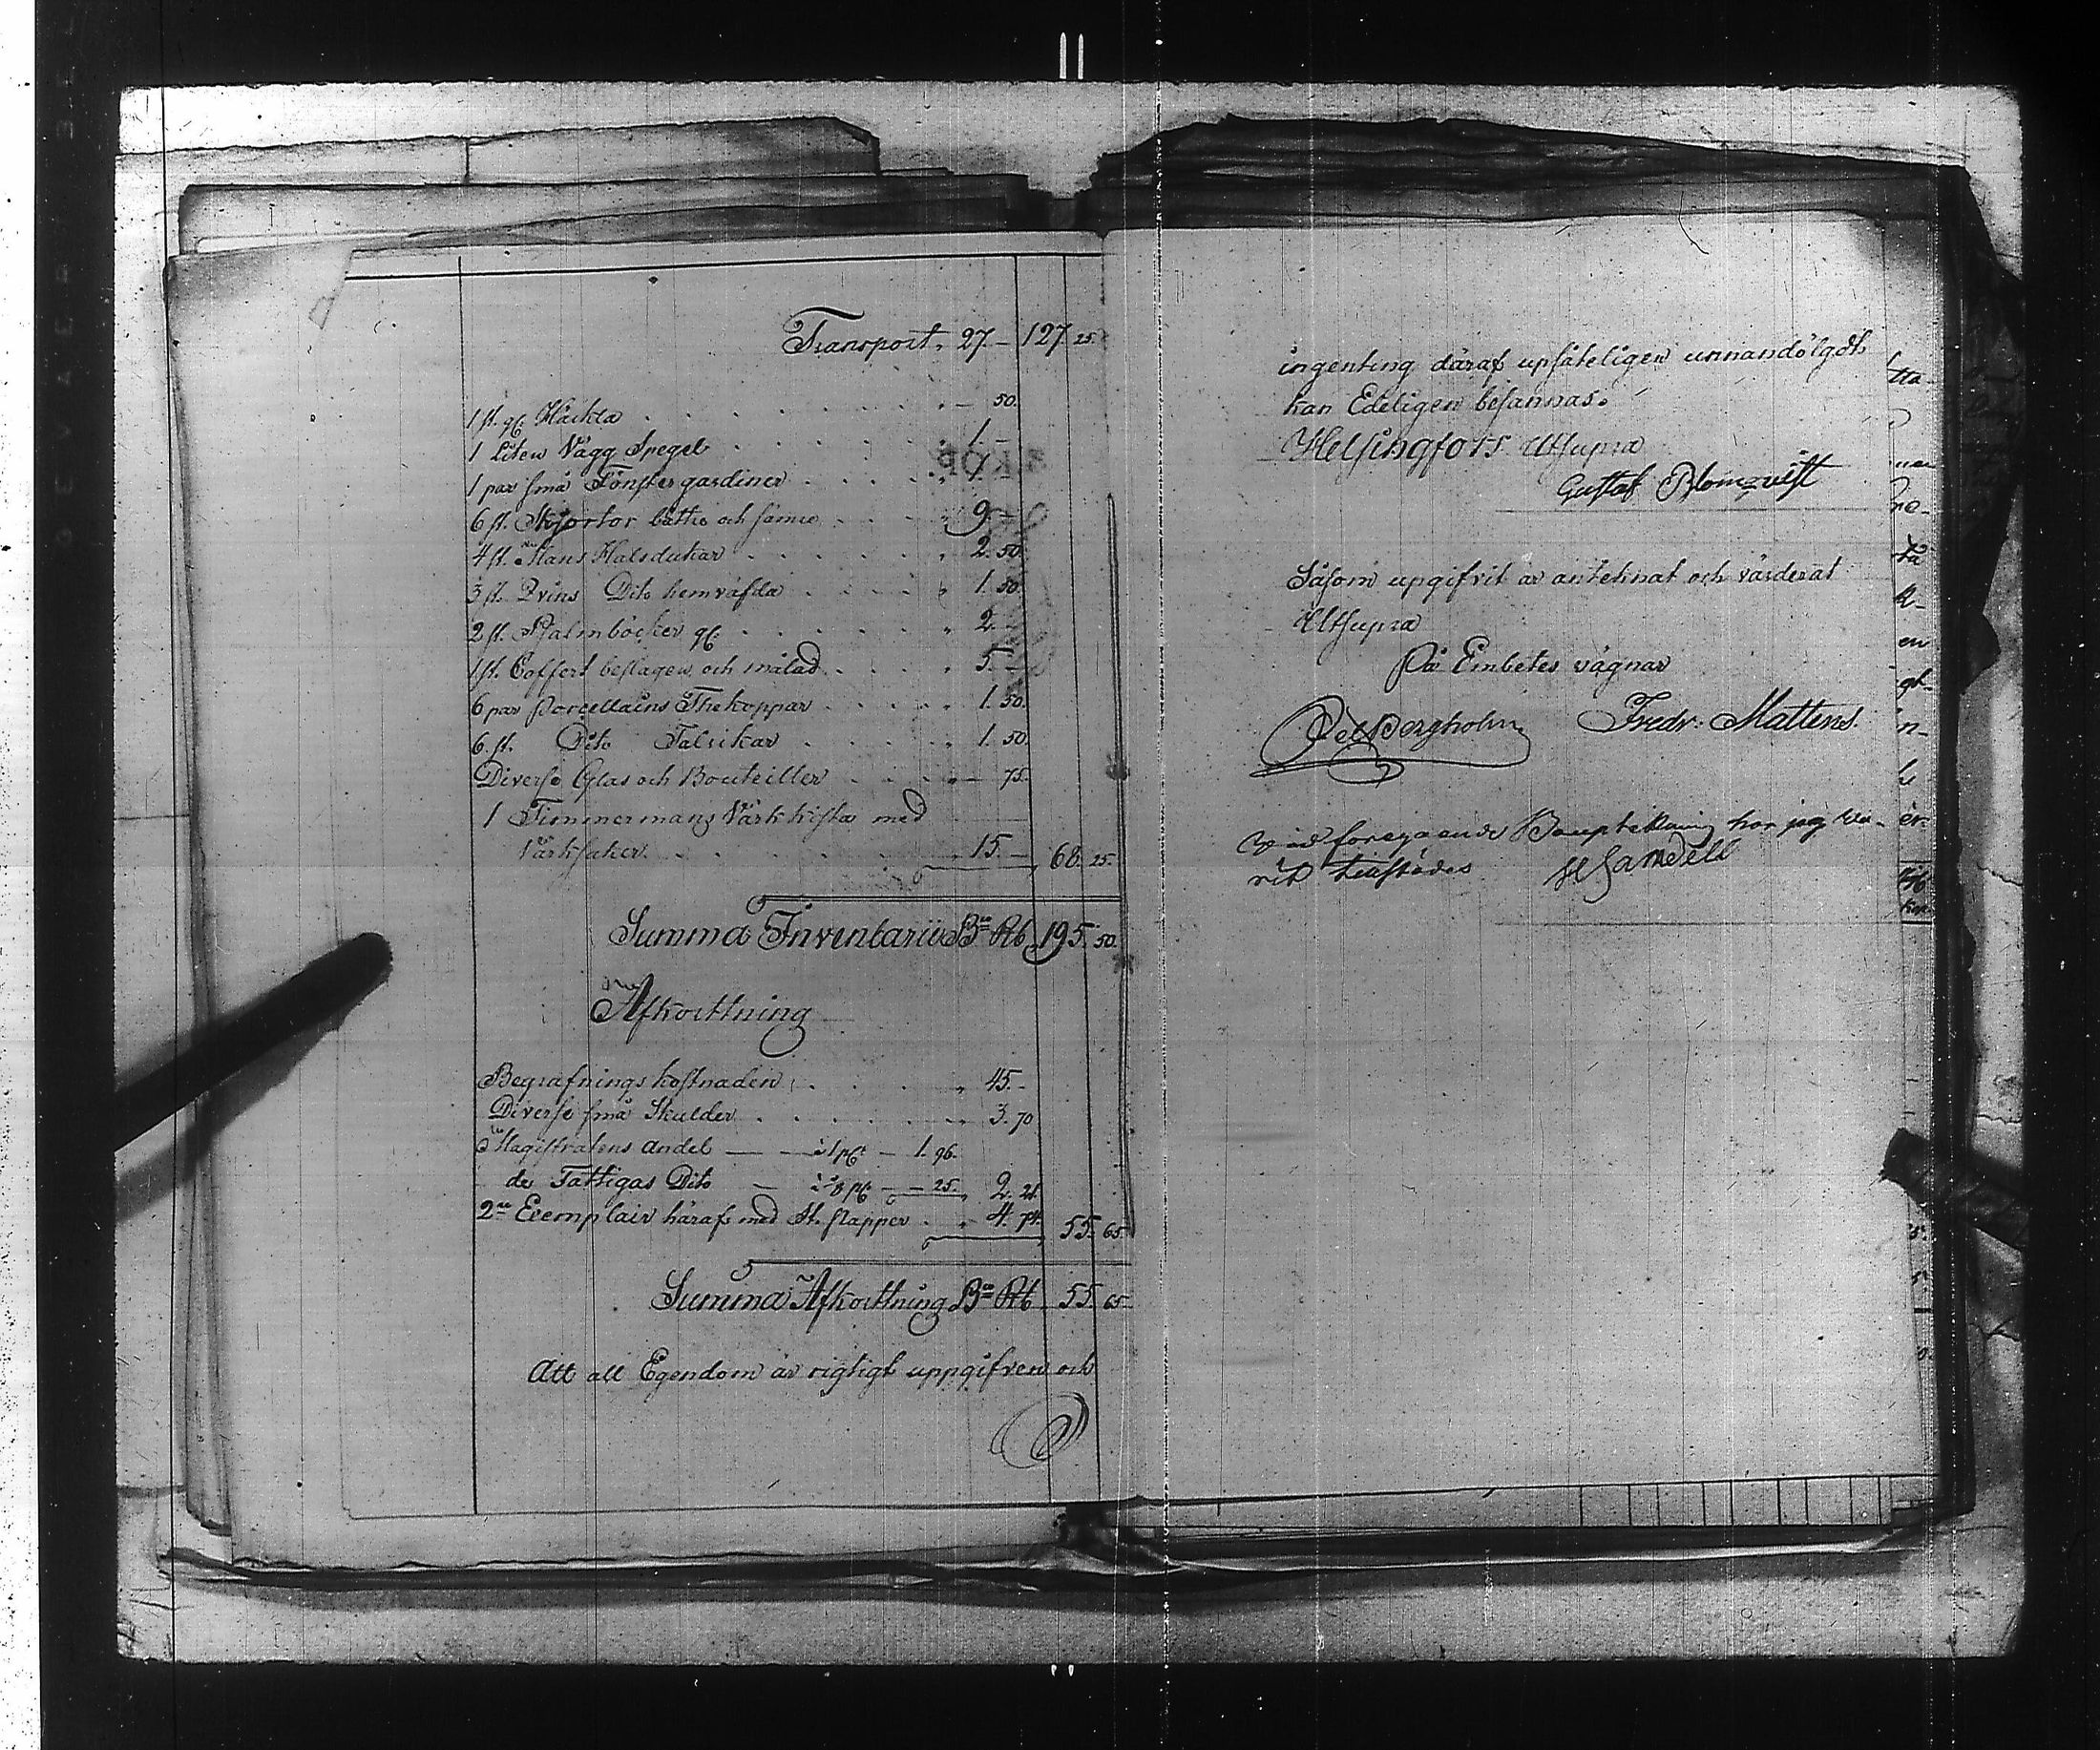 Transport „ 27. — 127. 25.
1 st. gl. Häckta . . . . „ — 50.
1 Liten Vägg Spegel . . . . „ 1. —
1 par små Fönstergardiner . . . . „ 1. —
6 st. Skjortor bättre och sämre . . „ 9. —
4 st. Mans Halsdukar . . . . „ 2. 50.
3 st. Dito hemväfda . . . . „ 1. 50.
2 st. Psalmböcker gl. . . . . „ 2. —
1 st. Coffert beslagen och målad . . . „ 5. —
6 par Porcellains Thekoppar . . . . „ 1. 50.
6 st. Dito Talrikar . . . . „ 1. 50.
Diverse Glas och Bouteiller . . . „ — 75.
1 Timmermans Värkkista med
Värksaker . . . . „ 15. — 68. 25.
Summa Inventarii B:co Rb 195. 50.
Afkorttning
Begrafnings kostnaden . . . „ 45. —
Diverse små Skulder . . . . „ 3. 70
Magistratens andel — — à 1 pC:t — 1. 96.
de Fattigas Dito — à ⅛ pC:t — — 25. „ 2. 21.
2:ne Exemplair häraf med St. papper . „ 4. 74. 55. 65.
Summa Afkorttning B:co Rb 55. 65.
Att all Egendom är rigtigt uppgifven och
ingenting däraf upsåteligen unnandölgdt
kan Edeligen besannas.
Helsingfors Utsupra
Gustaf Blomqvist
Såsom upgifvit är anteknat och värderat
Utsupra
På Embetes vägnar
Bergholm Fredr. Mattens
Vid foregaaende Bouptekning har jag va-
rit tillstädes Sandell